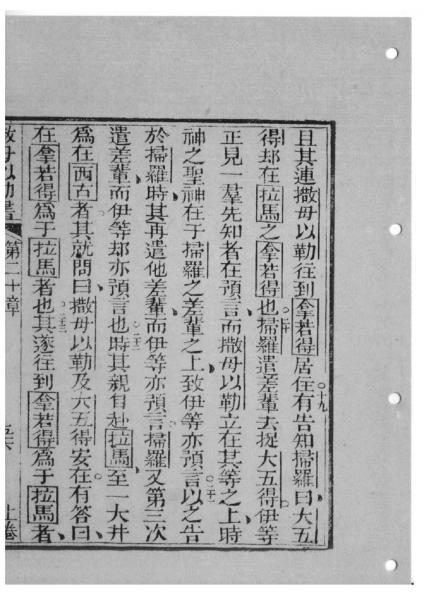 且其連撒母以勒往到拿若得居住○十九有告知掃羅曰大五
得却在拉馬之拿若得也○二十掃羅遣差輩去捉大五得伊等
正見一羣先知者在預言而撒母以勒立在其等之上時
神之聖神在于掃羅之差輩之上致伊等亦預言○二一以之告
於掃羅時其再遣他差輩而伊等亦預言掃羅又第三次
遣差輩而伊等却亦預言也○二二時其親自赴拉馬至一大井
爲在西古者其就問曰撒母以勒及大五得安在有答曰
在拿若得爲于拉馬者也○二三其遂往到拿若得爲于拉馬者
撒母以勒書 第二十章 上卷